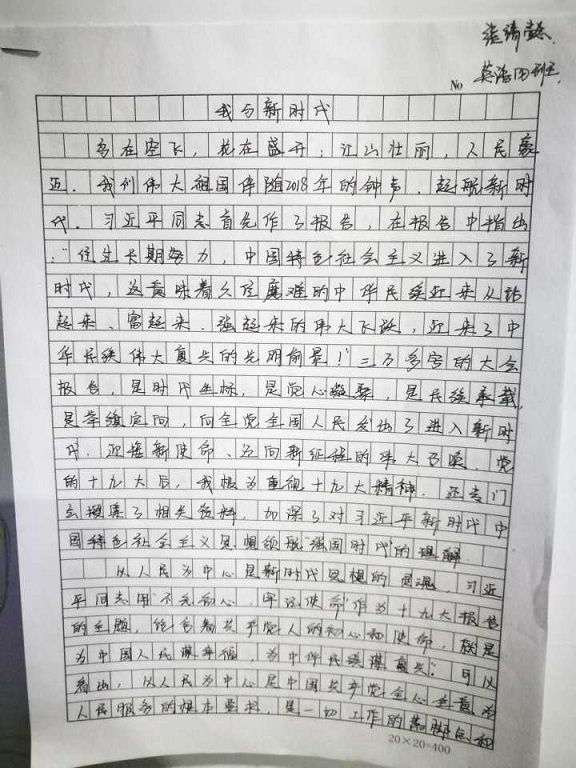 张靖懿
英语四班
No
我与新时代
鸟在空飞，花在盛开；江山壮丽，人民豪
迈。我们伟大祖国伴随2018年的钟声，起航新时
代。习近平同志首先作了报告，在报告中指出
："经过长期努力，中国特色社会主义进入了新
时代，这意味着久经磨难的中华民族迎来从站
起来、富起来、强起来的伟大飞跃，迎来了中
华民族伟大复兴的光明前景！"三万多字的大会
报告，是时代坐标，是党心凝聚，是民族承载，
是举旗定向，向全党全国人民发出了进入新时
代、迎接新使命、迈向新征程的伟大召唤。党
的十九大后，我极为重视十九大精神，还专门
去搜集了相关资料，加深了对习近平新时代中
国特色社会主义思想领航"强国时代"的理解。
以人民为中心是新时代思想的灵魂，习近
平同志用"不忘初心，牢记使命"作为十九大报告
的主题，包含着共产党人的初心和使命，就是
为中国人民谋幸福，为中华民族谋复兴。"可以
看出，以人民为中心是中国共产党全心全意为
人民服务的根本宗旨，是一切工作的落脚点和
20×20=400